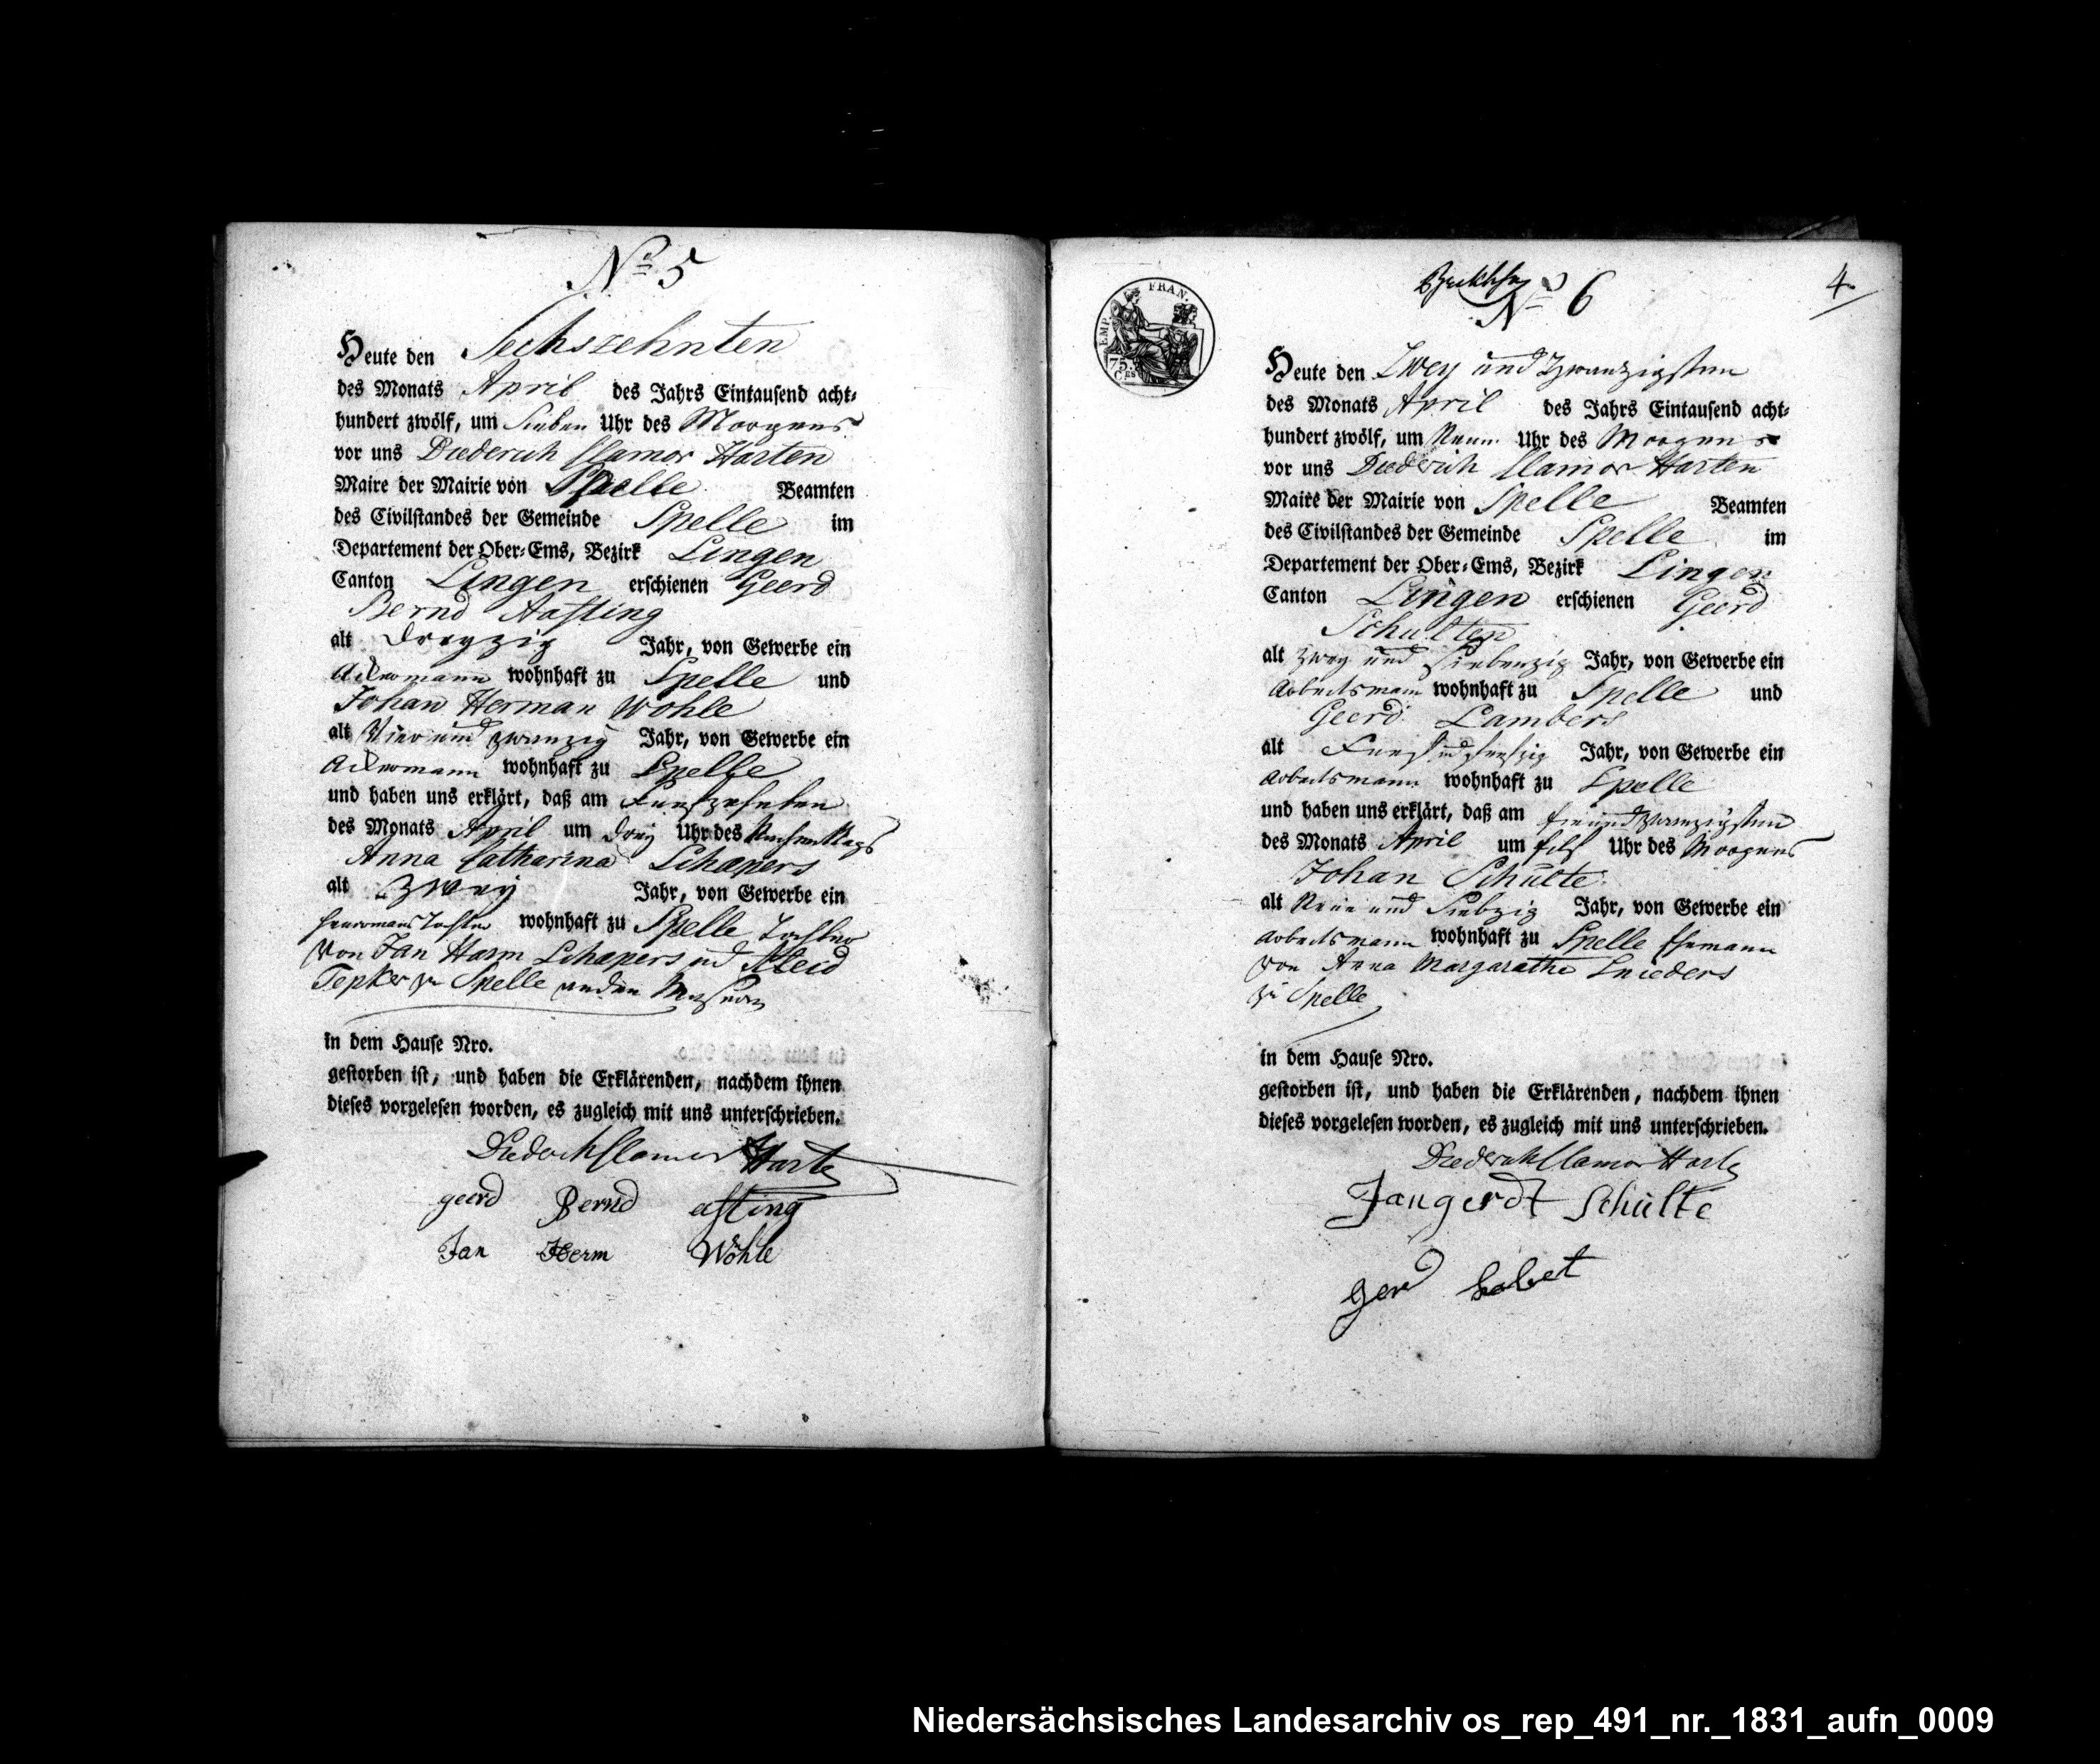 No 5
Heute den Sechszehnten
des Monats April des Jahrs Eintausend acht-
hundert zwölf, um Sieben Uhr des Morgens
vor uns Diederich Clamor Harten
Maire der Mairie von Spelle Beamten
des Civilstandes der Gemeinde Spelle im
Departement der Ober-Ems, Bezirk Lingen
Canton Lingen erschienen Geerd
Bernd Aasting
alt Dreyzig Jahr, von Gewerbe ein
Ackermann wohnhaft zu Spelle und
Johan Herman Wohle
alt Vier und zwanzig Jahr, von Gewerbe ein
Ackermann wohnhaft zu Spelle
und haben uns erklärt, daß am Funfzehnten
des Monats April um drey Uhr des Nachmittags
Anna Catharina Schapers
alt Zwey Jahr, von Gewerbe ein
Heuermans Tochter wohnhaft zu Spelle Tochter
von Jan Harm Schapers und Aleid
Tepker zu Spelle an den Masern
in dem Hause Nro.
gestorben ist, und haben die Erklärenden, nachdem ihnen
dieses vorgelesen worden, es zugleich mit uns unterschrieben.
Diederich Clamor Harten
geerd Bernd asting
Jan Herm Wöhle
EMP. FRAN.
75 Ces
No 6
4
Heute den Zwey und Zwanzigsten
des Monats April des Jahrs Eintausend acht-
hundert zwölf, um Neun Uhr des Morgens
vor uns Diederich Clamor Harten
Maire der Mairie von Spelle Beamten
des Civilstandes der Gemeinde Spelle im
Departement der Ober-Ems, Bezirk Lingen
Canton Lingen erschienen Geerd
Schulten
alt zwey und Siebenzig Jahr, von Gewerbe ein
Arbeitsmann wohnhaft zu Spelle und
Geerd Lambers
alt Funf und funfzig Jahr, von Gewerbe ein
Arbeitsmann wohnhaft zu Spelle
und haben uns erklärt, daß am ein und zwanzigsten
des Monats April um Eilf Uhr des Morgens
Johan Schulte
alt Neun und Siebzig Jahr, von Gewerbe ein
Arbeitsmann wohnhaft zu Spelle Ehemann
von Anna Margaratha Snieders
zu Spelle
in dem Hause Nro.
gestorben ist, und haben die Erklärenden, nachdem ihnen
dieses vorgelesen worden, es zugleich mit uns unterschrieben.
Diederich Clamor Harten
Jangerdt Schulte
ger
Niedersächsisches Landesarchiv os_rep_491_nr._1831_aufn_0009